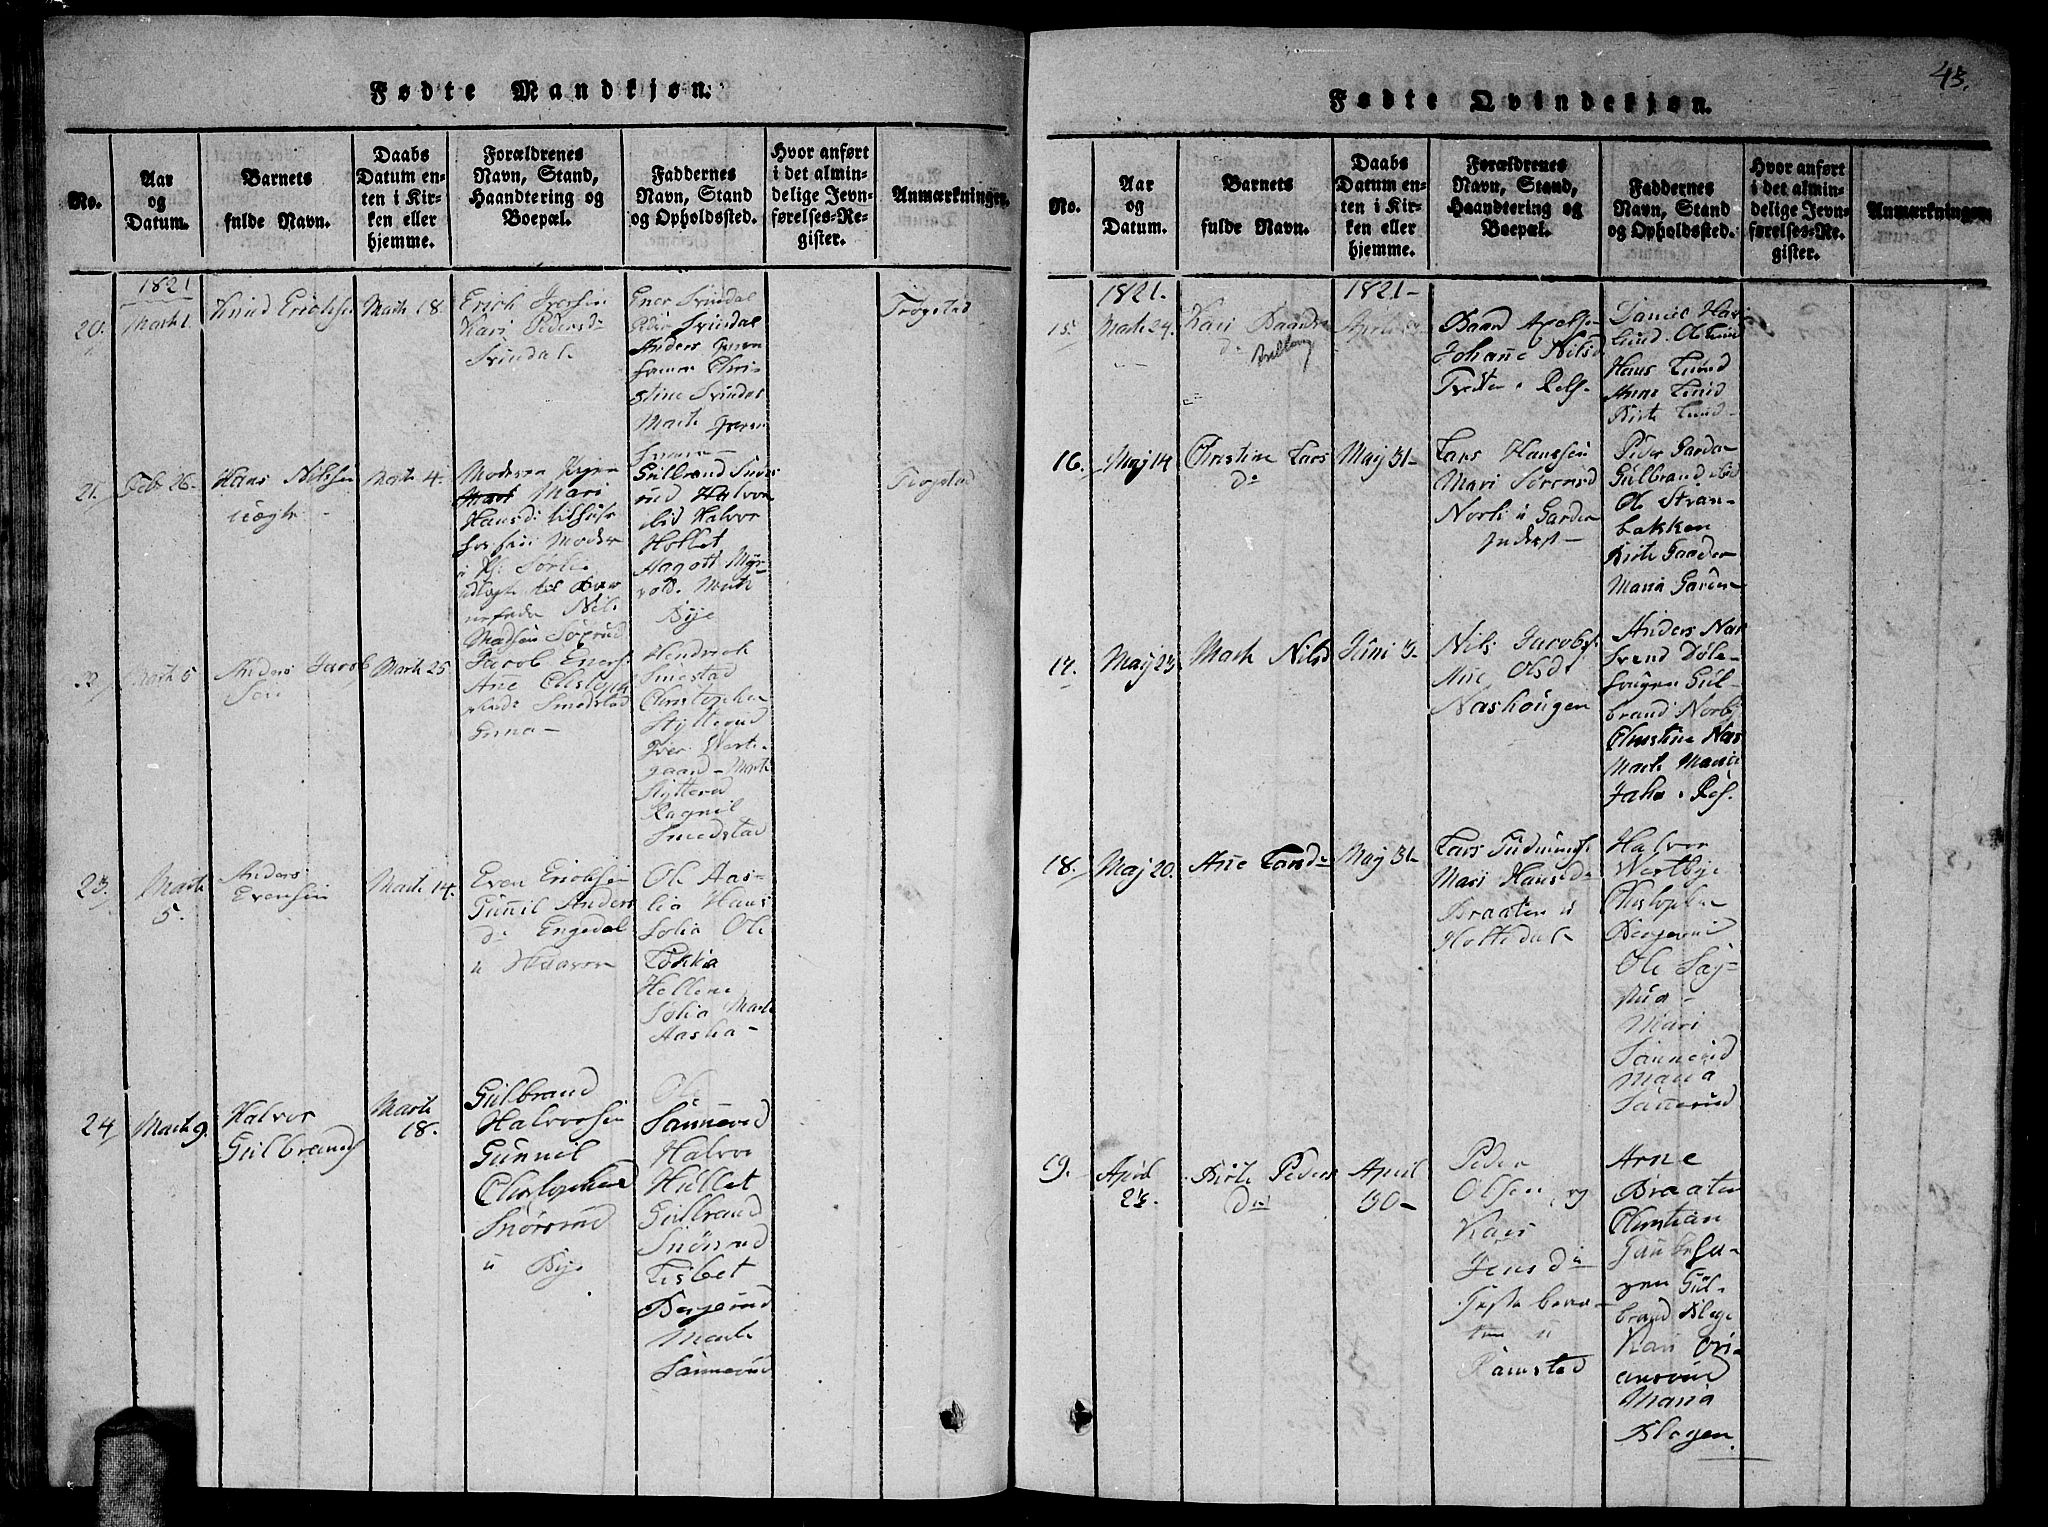 Fødte Mandkjøn.
No.
Aar
og
Datum.
Barnets
fulde Navn.
Daabs
Datum en-
ten i Kir-
ken eller
hjemme.
Forældrenes
Navn, Stand,
Haandtering og
Boepæl.
Faddernes
Navn, Stand
og Opholdssted.
Hvor anført
i det almin-
delige Jevn-
førelses-Re-
gister.
Anmærkninger.
1821
20.
Marti 1.
Knud Erichsen
Marti 18.
Erich Iversen
Kari Pedersd
Svindal
Ener Svindal
Peder Svindal
Anders
Chri-
stine Svindal
Marte
Trøgstad
21.
Feb. 26.
Hans Nilsen
uægte
Marti 4.
Moderen Pigen
Mari
Hansd:
Moder
Nils
Madsen
Gulbrand
rud Halvor
ibid Halvor
Hollet
Marte
Bye
Trogstad
22
Marti 5
Anders Jacob
sen
Marti 25
Jacob Eners.
Ane Christoph
Smedstad
Hendrich
Smestad
Christopher
Stytterud
Iver Westi-
gaard Marte
Stytterud
Ragnil
Smedstad
23.
Marti
5.
Anders
Evensen
Marti 14.
Even Erichsen
Gunnil Anders
d: Engedal
u
Ole Aas-
lia Hans
Solia Ole
Hellene
Solia Marte
Aaslia
24
Marti 9.
Halvor
Gulbrands
Marti
18.
Gulbrand
Halvorsen
Gunnil
Christophersd
Snorsrud
u Bye
Ole
Sannerud
Halvor
Hullet
Gulbrand
Snorsrud
Lisbet
Bergerud
Marte
Sannerud
43.
Fødte Qvindekjøn.
No.
Aar
og
Datum.
Barnets
fulde Navn.
Daabs
Datum en-
ten i Kir-
ken eller
hjemme.
Forældrenes
Navn, Stand,
Haandtering og
Boepæl.
Faddernes
Navn, Stand
og Opholdssted.
Hvor anført
i det almin-
delige Jevn-
førelses-Re-
gister.
Anmærkninger.
1821.
1821
15
Marti 24.
Kari Baards
d:
April
Baard Axelsen
Johanne Nilsd
Tveten
Daniel Hav
lund. Ole Lund
Hans Lund
Anne Lund
Birte Lund
16.
Maj 14
Christine Lars
d:
Maj 31
Lars Hanssen
Mari Sorensd
Norli u Garder
Inderst
Peder Garder
Gulbrand ibid
Ole Stran-
bakken
Birte Gaarder
Maria Garder
17.
Maj 23.
Marte Nilsd
Juni 3
Nils Jacobs:
Ane Olsd
Nashougen
Anders Nas
Svend Dole-
hougen Gul-
brand Norby
Christine Nas
Marte Maria
18.
Maj 20.
Ane Larsd:
Maj 31
Lars Gudmunds
Mari Hansd:
Braaten u
Holtedal
Halvor
Westbye
Christopher
Bergerud
Ole Say-
rud
Mari
Sannerud
Maria
Sannerud
19.
April
23.
Birte Peders
d:
April
30
Peder
Olsen og
Kari
Jensd:
u
Ramstad
Arne
Braaten
Christian
Gaukehou-
gen Gul-
brand Bloge
Kari Ori-
ansrud
Maria
Blogen